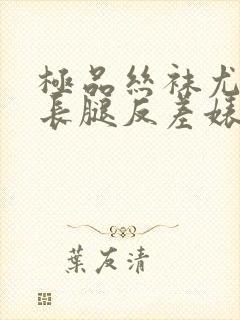 極品絲袜尤
長腿反差婊
葉友清